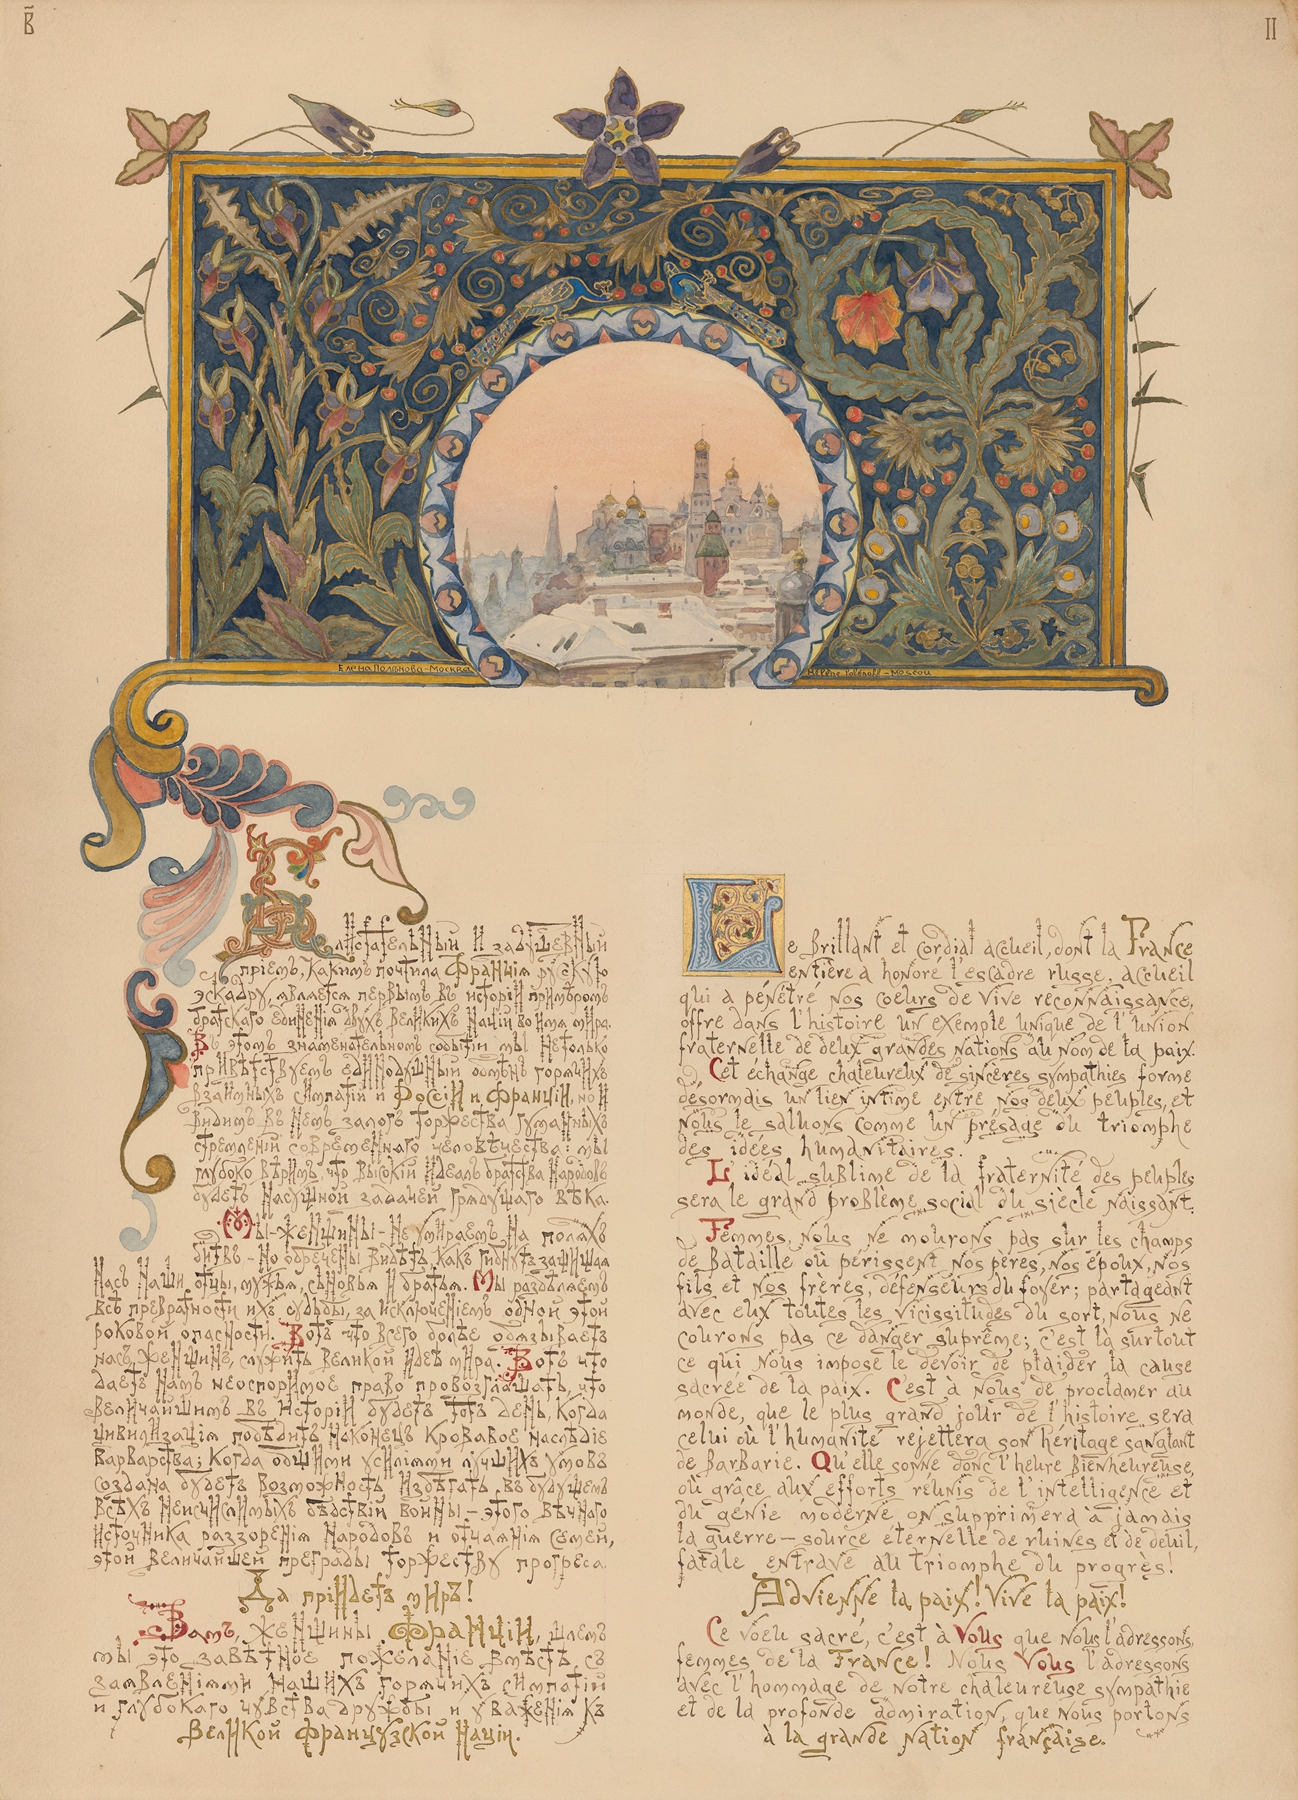 В̃
II
Елена Полѣнова-Москва
Hélène Polénoff-Moscou
Блистательный и задушевный
пріемъ, какимъ почтила Франція русскую
эскадру, является первымъ въ исторіи примѣромъ
братскаго единенія двухъ великихъ націй во имя мира.
Въ этомъ знаменательномъ событіи мы не только
привѣтствуемъ единодушный обмѣнъ горячихъ
взаимныхъ симпатій и Россіи и Франціи, но и
видимъ въ немъ залогъ торжества гуманныхъ
стремленій современнаго человѣчества: мы
глубоко вѣримъ, что высокій идеалъ братства народовъ
будетъ насущной задачей грядущаго вѣка.
Мы-женщины-не умираемъ на поляхъ
битвъ-но обречены видѣть, какъ гибнутъ защищая
насъ наши отцы, мужья, сыновья и братья. Мы раздѣляемъ
всѣ превратности ихъ судьбы, за исключеніемъ одной этой
роковой опасности. Вотъ что всего болѣе обязываетъ
насъ, женщинъ, служить великой идеѣ мира. Вотъ что
даетъ намъ неоспоримое право провозглашать, что
величайшимъ въ исторіи будетъ тотъ день, когда
цивилизація побѣдитъ наконецъ кровавое наслѣдіе
варварства; когда общими усиліями лучшихъ умовъ
создана будетъ возможность избѣгать въ будущемъ
всѣхъ неисчислимыхъ бѣдствій войны-этого вѣчнаго
источника раззоренія народовъ и отчаянія семей,
этой величайшей преграды торжеству прогреса.
Да пріидетъ миръ!
Вамъ, женщины Франціи, шлемъ
мы это завѣтное пожеланіе вмѣстѣ съ
заявленіями нашихъ горячихъ симпатій
и глубокаго чувства дружбы и уваженія къ
великой французской націи.
Le brillant et cordial accueil, dont la France
entière a honoré l'escadre russe, accueil
qui a pénétré nos coeurs de vive reconnaissance,
offre dans l'histoire un exemple unique de l'union
fraternelle de deux grandes nations au nom de la paix.
Cet échange chaleureux de sincères sympathies forme
désormais un lien intime entre nos deux peuples, et
nous le saluons comme un présage du triomphe
des idées humanitaires.
L'idéal sublime de la fraternité des peuples
sera le grand problème social du siècle naissant.
Femmes, nous ne mourons pas sur les champs
de Bataille où périssent nos pères, nos époux, nos
fils et nos frères, défenseurs du foyer; partageant
avec eux toutes les vicissitudes du sort, nous ne
courons pas ce danger suprême; c'est là surtout
ce qui nous impose le devoir de plaider la cause
sacrée de la paix. C'est à nous de proclamer au
monde, que le plus grand jour de l'histoire sera
celui où l'humanité rejettera son héritage sanglant
de Barbarie. Qu'elle sonne donc l'heure Bienheureuse,
où grâce aux efforts réunis de l'intelligence et
du génie moderne on supprimera à jamais
la guerre-source éternelle de ruines et de deuil,
fatale entrave au triomphe du progrès!
Advienne la paix! Vive la paix!
Ce voeu sacré, c'est à Vous que nous l'adressons,
femmes de la France! Nous Vous l'adressons
avec l'hommage de notre chaleureuse sympathie
et de la profonde admiration, que nous portons
à la grande nation française.